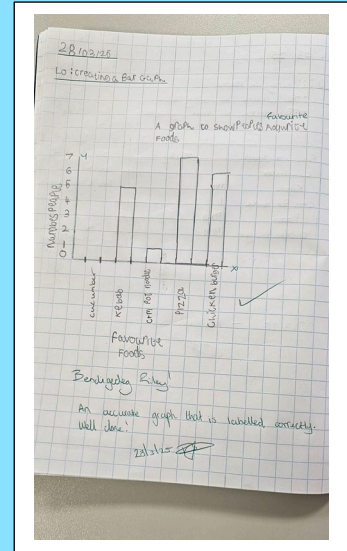 28/03/25
Lo: creating a Bar Graph
favourite
A graph to show Peoples
Foods
7 y
6
5
4
3
2
1
0
Numbers People
x
cucumber
Kebab
Pot noodle
Pizza
Chicken burger
Favourite
Foods
Bendigedig Riley!
An accurate graph that is labelled correctly.
Well done!
28/3/25